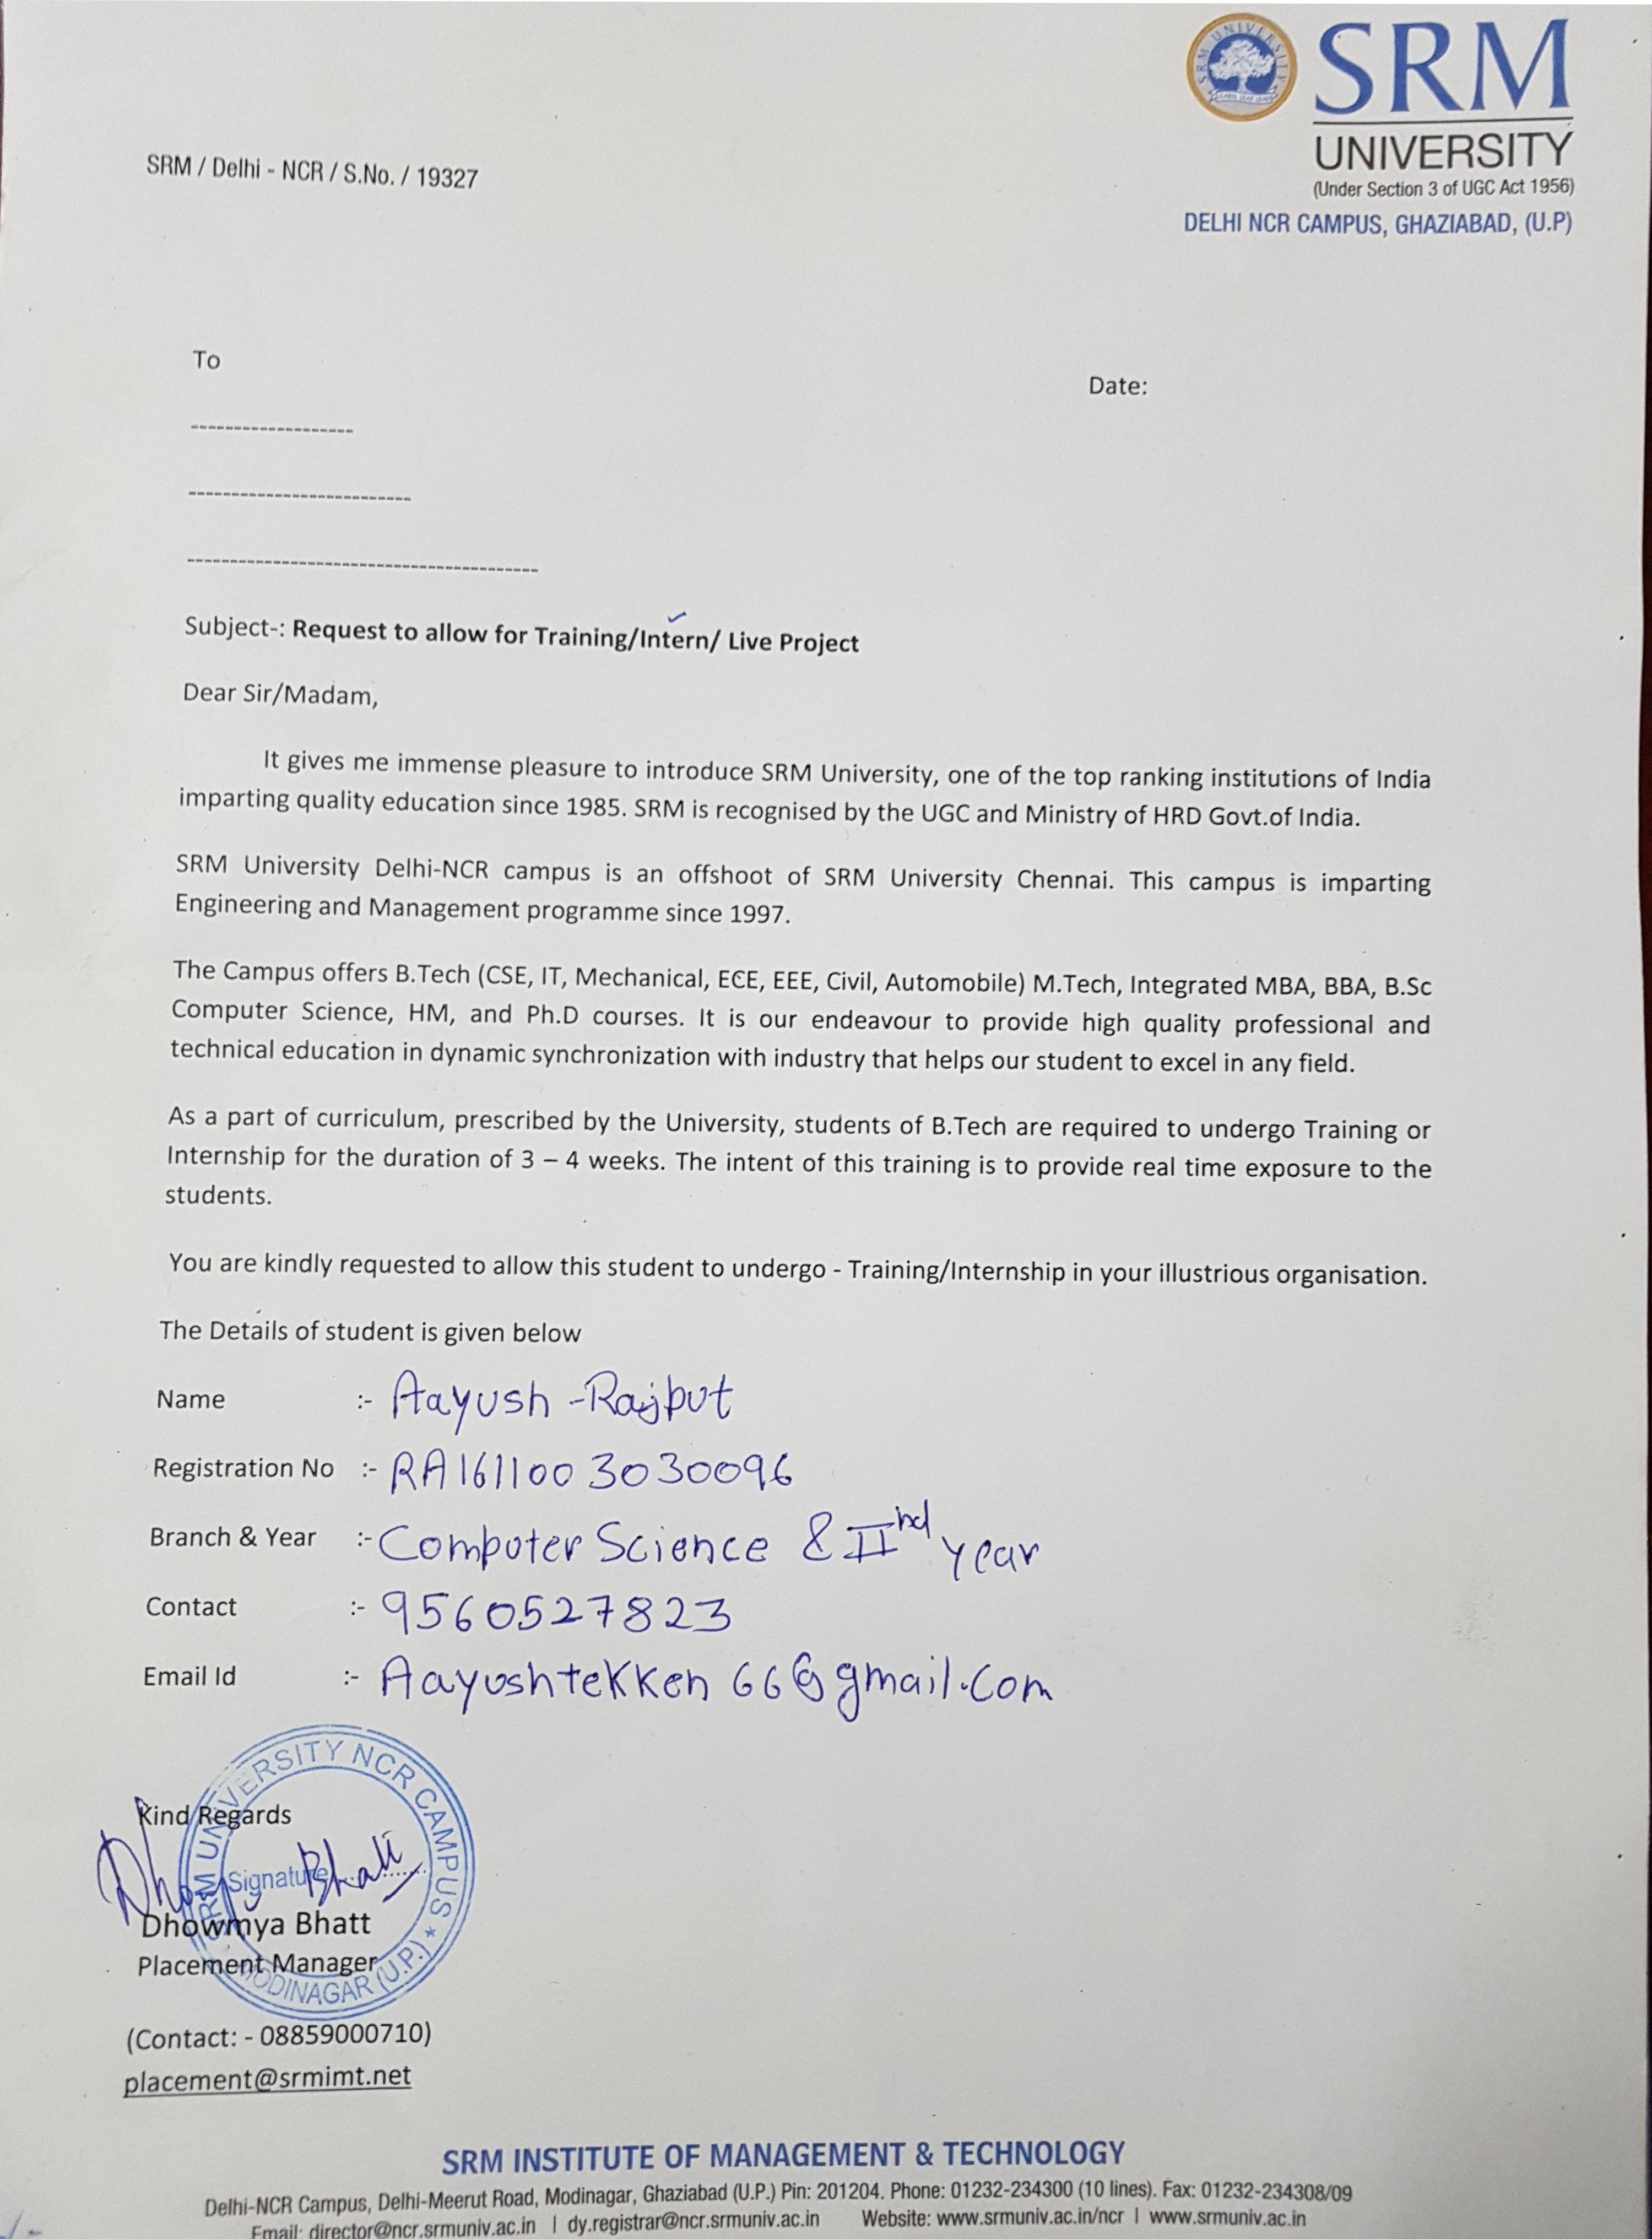 SRM UNIVERSITY
SRM
UNIVERSITY
(Under Section 3 of UGC Act 1956)
DELHI NCR CAMPUS, GHAZIABAD, (U.P)
SRM / Delhi - NCR / S.No. / 19327
To
Date:
-------------------
--------------------------
-----------------------------------------
Subject-: Request to allow for Training/Intern/ Live Project
Dear Sir/Madam,
It gives me immense pleasure to introduce SRM University, one of the top ranking institutions of India
imparting quality education since 1985. SRM is recognised by the UGC and Ministry of HRD Govt.of India.
SRM University Delhi-NCR campus is an offshoot of SRM University Chennai. This campus is imparting
Engineering and Management programme since 1997.
The Campus offers B.Tech (CSE, IT, Mechanical, ECE, EEE, Civil, Automobile) M.Tech, Integrated MBA, BBA, B.Sc
Computer Science, HM, and Ph.D courses. It is our endeavour to provide high quality professional and
technical education in dynamic synchronization with industry that helps our student to excel in any field.
As a part of curriculum, prescribed by the University, students of B.Tech are required to undergo Training or
Internship for the duration of 3 – 4 weeks. The intent of this training is to provide real time exposure to the
students.
You are kindly requested to allow this student to undergo - Training/Internship in your illustrious organisation.
The Details of student is given below
Name :- Aayush -Rajput
Registration No :- RA1611003030096
Branch & Year :- Computer Science & IInd year
Contact :- 9560527823
Email Id :- Aayushtekken66@gmail.com
SRM UNIVERSITY NCR CAMPUS * MODINAGAR (U.P.) *
Kind Regards
Signature
Bhatt
Dhowmya Bhatt
Placement Manager
(Contact: - 08859000710)
placement@srmimt.net
SRM INSTITUTE OF MANAGEMENT & TECHNOLOGY
Delhi-NCR Campus, Delhi-Meerut Road, Modinagar, Ghaziabad (U.P.) Pin: 201204. Phone: 01232-234300 (10 lines). Fax: 01232-234308/09
Email: director@ncr.srmuniv.ac.in | dy.registrar@ncr.srmuniv.ac.in Website: www.srmuniv.ac.in/ncr | www.srmuniv.ac.in